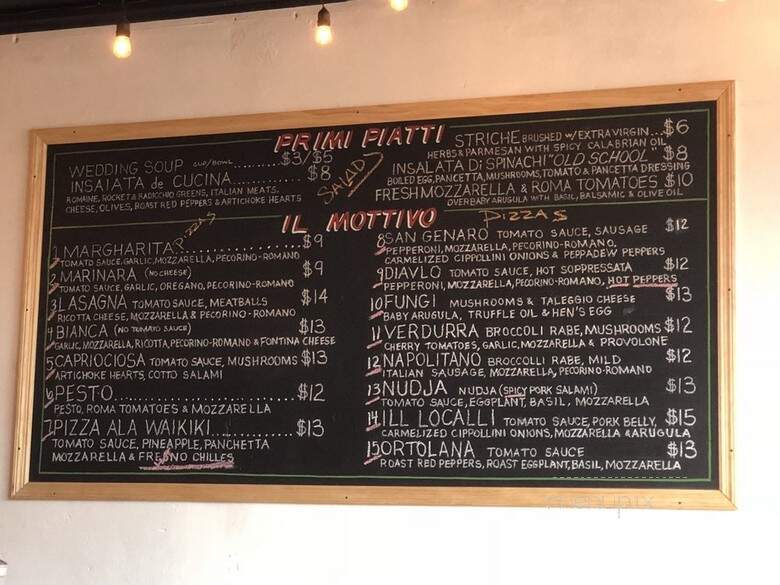 PRIMI PIATTI
WEDDING SOUP CUP/BOWL..........$3/$5
INSAlATA de CUCINA..........$8
ROMAINE, ROCKET & RADICCHIO GREENS, ITALIAN MEATS.
CHEESE, OLIVES, ROAST RED PEPPERS & ARTICHOKE HEARTS
SALAD
STRICHE BRUSHED W/EXTRA VIRGIN...$6
HERBS & PARMESAN WITH SPICY CALABRIAN OIL
INSALATA Di SPINACHI "OLD SCHOOL" $8
BOILED EGG, PANCETTA, MUSHROOMS, TOMATO & PANCETTA DRESSING
FRESH MOZZARELLA & ROMA TOMATOES $10
OVER BABY ARUGULA WITH BASIL, BALSAMIC & OLIVE OIL
IL MOTTIVO
PIZZAS
PIZZAS
1 MARGHARITA..........$9
TOMATO SAUCE, GARLIC, MOZZARELLA, PECORINO-ROMANO
2 MARINARA (NO CHEESE) $9
TOMATO SAUCE, GARLIC, OREGANO, PECORINO-ROMANO
3 LASAGNA TOMATO SAUCE, MEATBALLS $14
RICOTTA CHEESE, MOZZARELLA & PECORINO-ROMANO
4 BIANCA (NO TOMATO SAUCE) $13
GARLIC, MOZZARELLA, RICOTTA, PECORINO-ROMANO & FONTINA CHEESE
5 CAPRIOCIOSA TOMATO SAUCE, MUSHROOMS $13
ARTICHOKE HEARTS, COTTO SALAMI
6 PESTO..........$12
PESTO, ROMA TOMATOES & MOZZARELLA
7 PIZZA ALA WAIKIKI..........$13
TOMATO SAUCE, PINEAPPLE, PANCHETTA
MOZZARELLA & FRESNO CHILLES
8 SAN GENARO TOMATO SAUCE, SAUSAGE $12
PEPPERONI, MOZZARELLA, PECORINO-ROMANO,
CARMELIZED CIPPOLLINI ONIONS & PEPPADEW PEPPERS
9 DIAVLO TOMATO SAUCE, HOT SOPPRESSATA $12
PEPPERONI, MOZZARELLA, PECORINO-ROMANO, HOT PEPPERS
10 FUNGI MUSHROOMS & TALEGGIO CHEESE $13
BABY ARUGULA, TRUFFLE OIL & HEN'S EGG
11 VERDURRA BROCCOLI RABE, MUSHROOMS $12
CHERRY TOMATOES, GARLIC, MOZZARELLA & PROVOLONE
12 NAPOLITANO BROCCOLLI RABE, MILD $12
ITALIAN SAUSAGE, MOZZARELLA, PECORINO-ROMANO
13 NUDJA NUDJA (SPICY PORK SALAMI) $13
TOMATO SAUCE, EGGPLANT, BASIL, MOZZARELLA
14 ILL LOCALLI TOMATO SAUCE, PORK BELLY, $15
CARMELIZED CIPPOLLINI ONIONS, MOZZARELLA & ARUGULA
15 ORTOLANA TOMATO SAUCE $13
ROAST RED PEPPERS, ROAST EGGPLANT, BASIL, MOZZARELLA
menupix